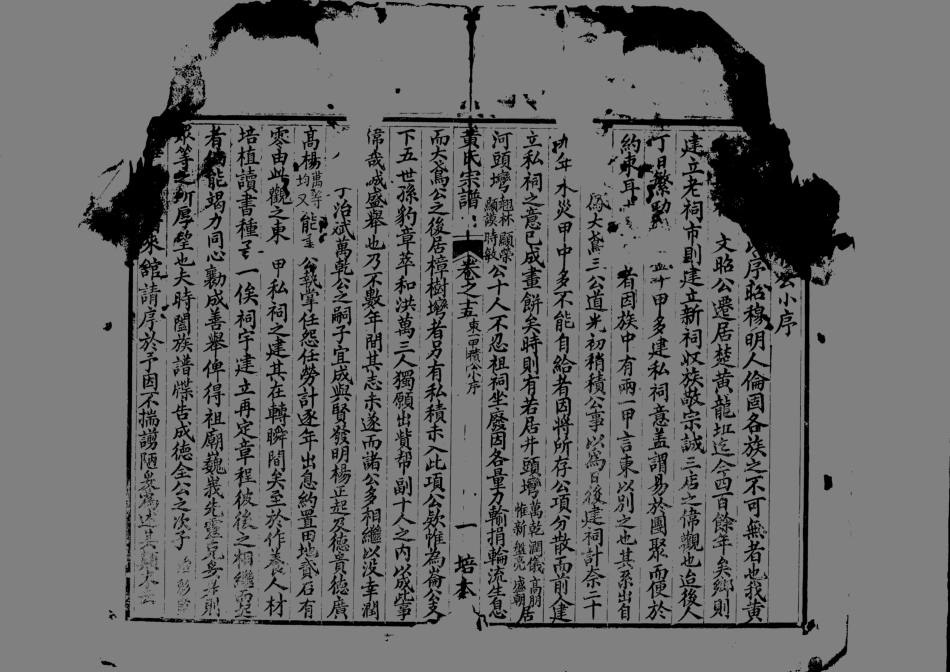 小序
序昭穆明人倫固各族之不可無者也我黃
文昭公遷居楚黃龍坵迄今四百餘年矣鄉則
建立老祠市則建立新祠以族敬宗誠三店之偉觀也迨後人
丁日繁 甲多建私祠意盖謂易於團聚而便於
約束耳 者因族中有兩一甲言東以別之也其系出自
大 三公道光初稍積公事以為日後建祠計奈二十
年水災甲中多不能自給者因將所存公項分散而前建
立私祠之意已成畫餅矣時則有若居井頭塆萬乾潤儀高朋惟新盤亮盛朝居
河頭塆翹林顯榮顯謨時敏公十人不忍祖祠坐廢因各量力輸捐輪流生息
黃氏宗譜 卷之 東一甲積公小序 一 培本
而大 公之後居樟樹塆者另有私積未入此項公欵惟為崙公支
下五世孫豹章萃和洪萬三人獨願出貲帮副十人之內以成此掌
偉哉誠盛舉也乃不數年間其志未遂而諸公多相繼以沒幸潤
丁治斌萬乾公之嗣子宜成與賢發明楊正起及德貴德廣
高楊萬等均又能 公執掌任怨任勞計逐年出息約置田地貳石有
零由此觀之東 甲私祠之建其在轉瞬間矣至於作養人材
培植讀書種 一俟祠宇建立再定章程彼後之相繼而起
者 能竭力同心勷成善舉俾得祖廟巍峩先靈克妥 則
眾等之所厚望也夫時闔族譜牒告成德全公之次子
來舘請序於予因不揣謭陋爰為述其顛末云